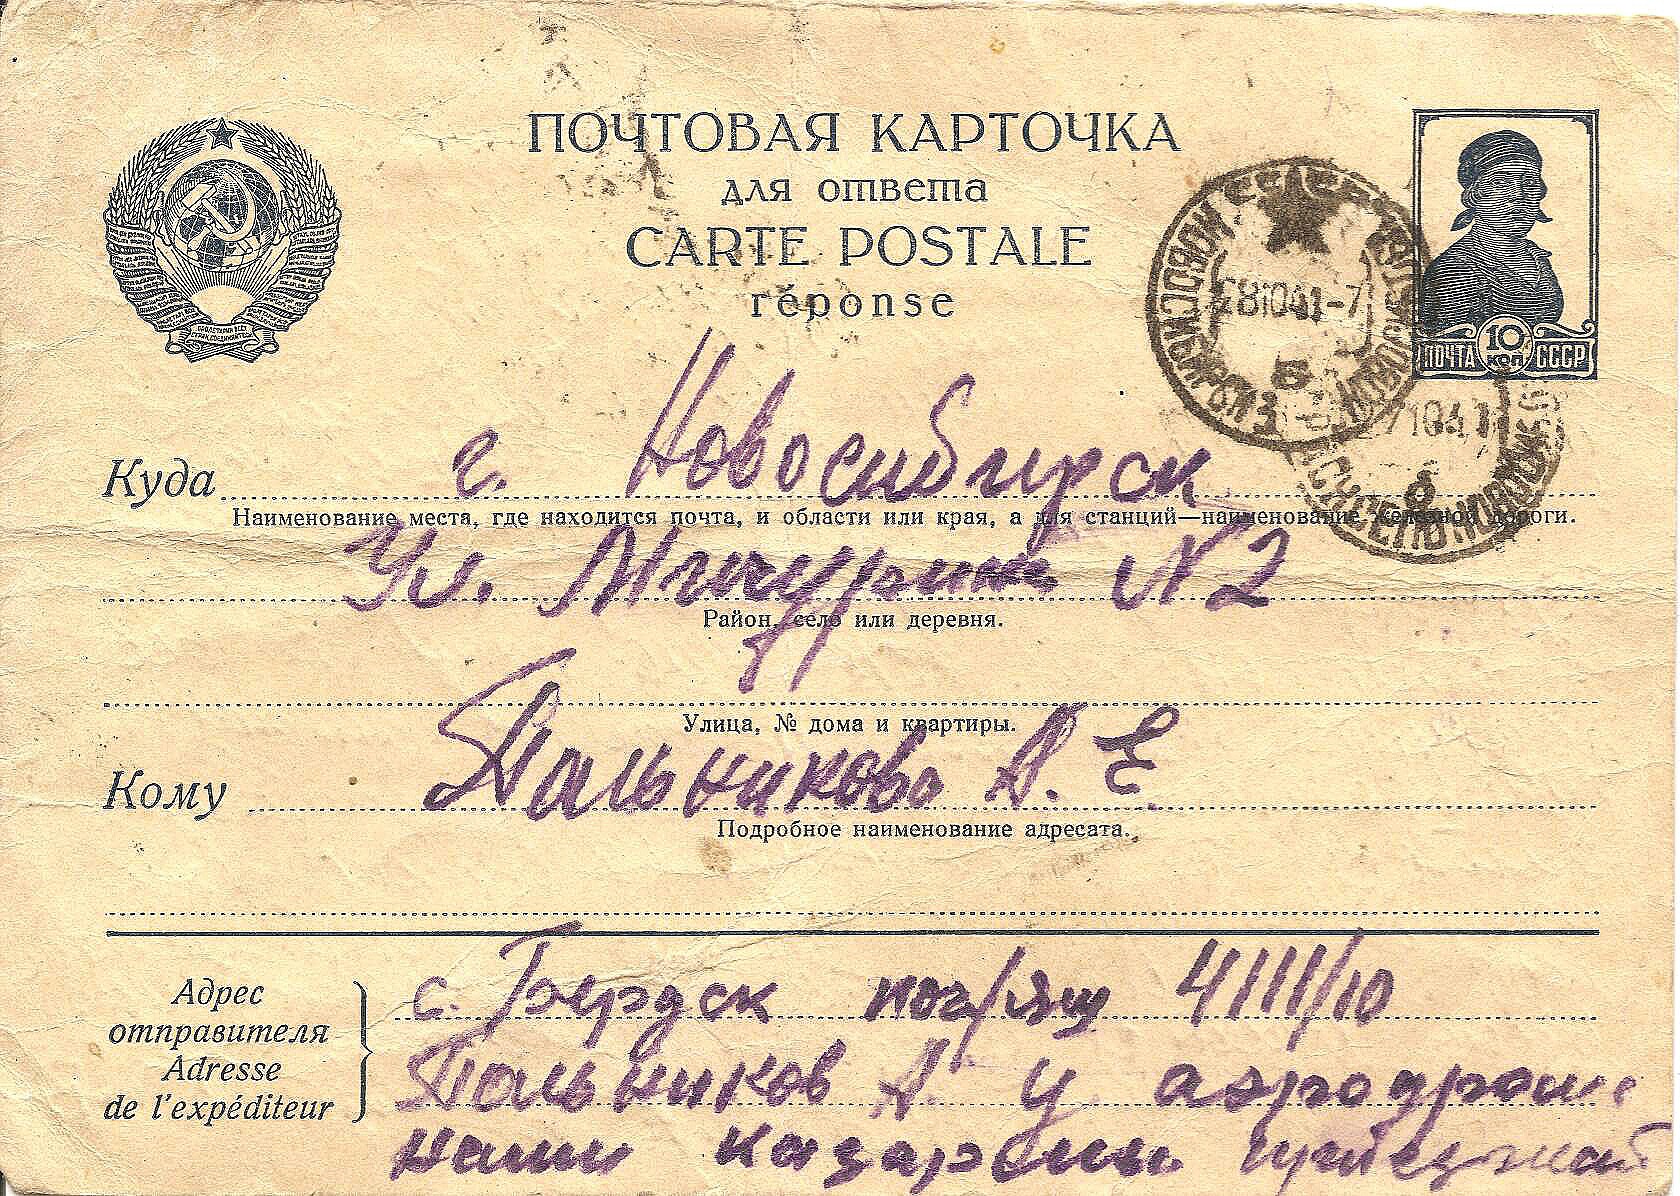 ПОЧТОВАЯ КАРТОЧКА
для ответа
CARTE POSTALE
réponse
28 10 41-7
Б
10
КОП
ПОЧТА СССР
Куда г. Новосибирск
Наименование места, где находится почта, и области или края, а для станций—наименование железной дороги.
Ул. Мичурина N 2
Район, село или деревня.
Улица, № дома и квартиры.
Кому Пальниково А. Е.
Подробное наименование адресата.
Адрес
отправителя
Adresse
de l'expéditeur
с. Бердск поч/ящ
Пальников А. У аэродрома
наши казармы